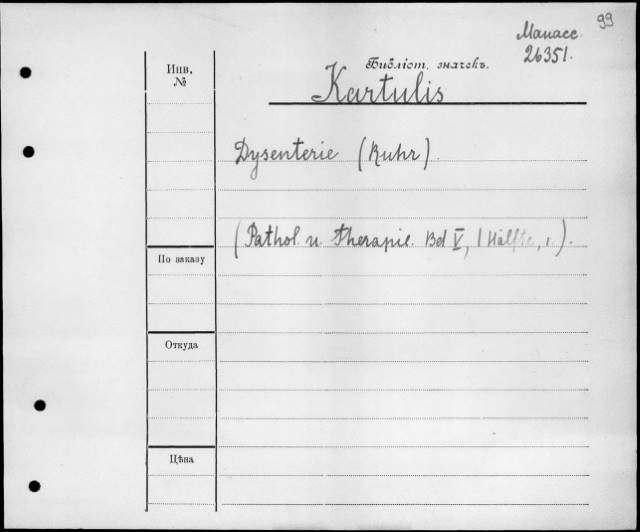 99
Манасс.
26351.
Инв.
№
Библіот. значекъ.
Kartulis
Dysenterie (Ruhr).
(Pathol. u. Therapie. Bd V, 1 Hälfte, 1.).
По заказу
Откуда
Цѣна